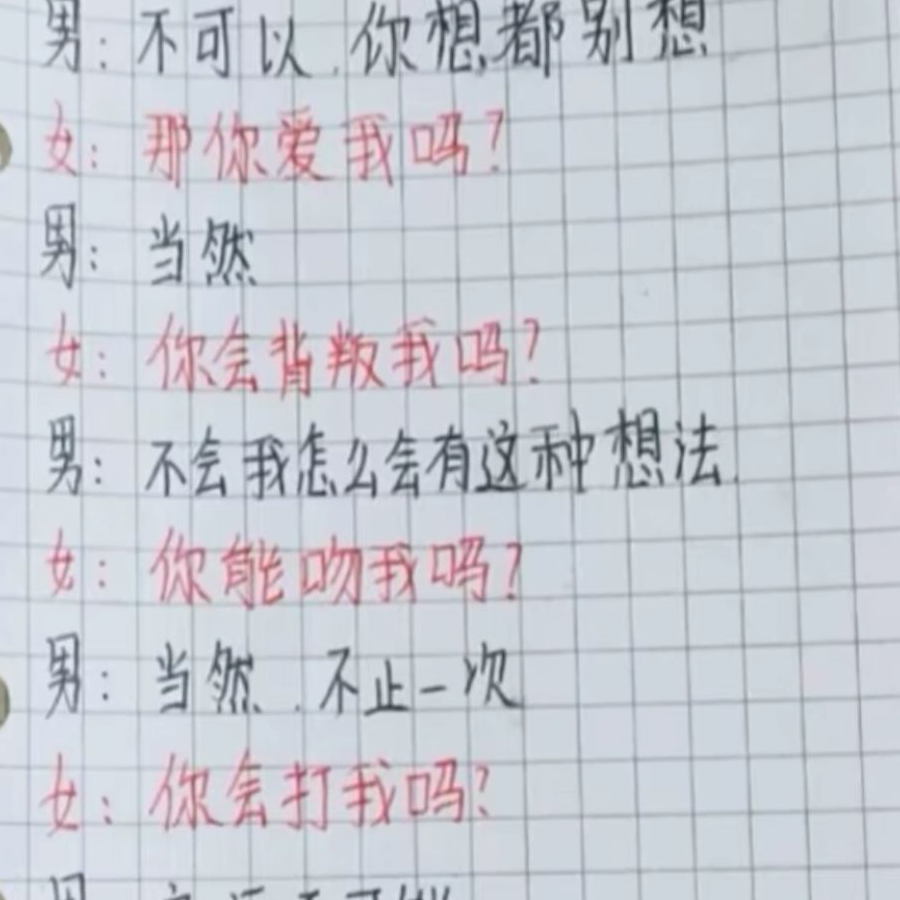 男：不可以.你想都别想
女：那你爱我吗？
男：当然
女：你会背叛我吗？
男：不会我怎么会有这种想法.
女：你能吻我吗？
男：当然.不止一次
女：你会打我吗？
男：